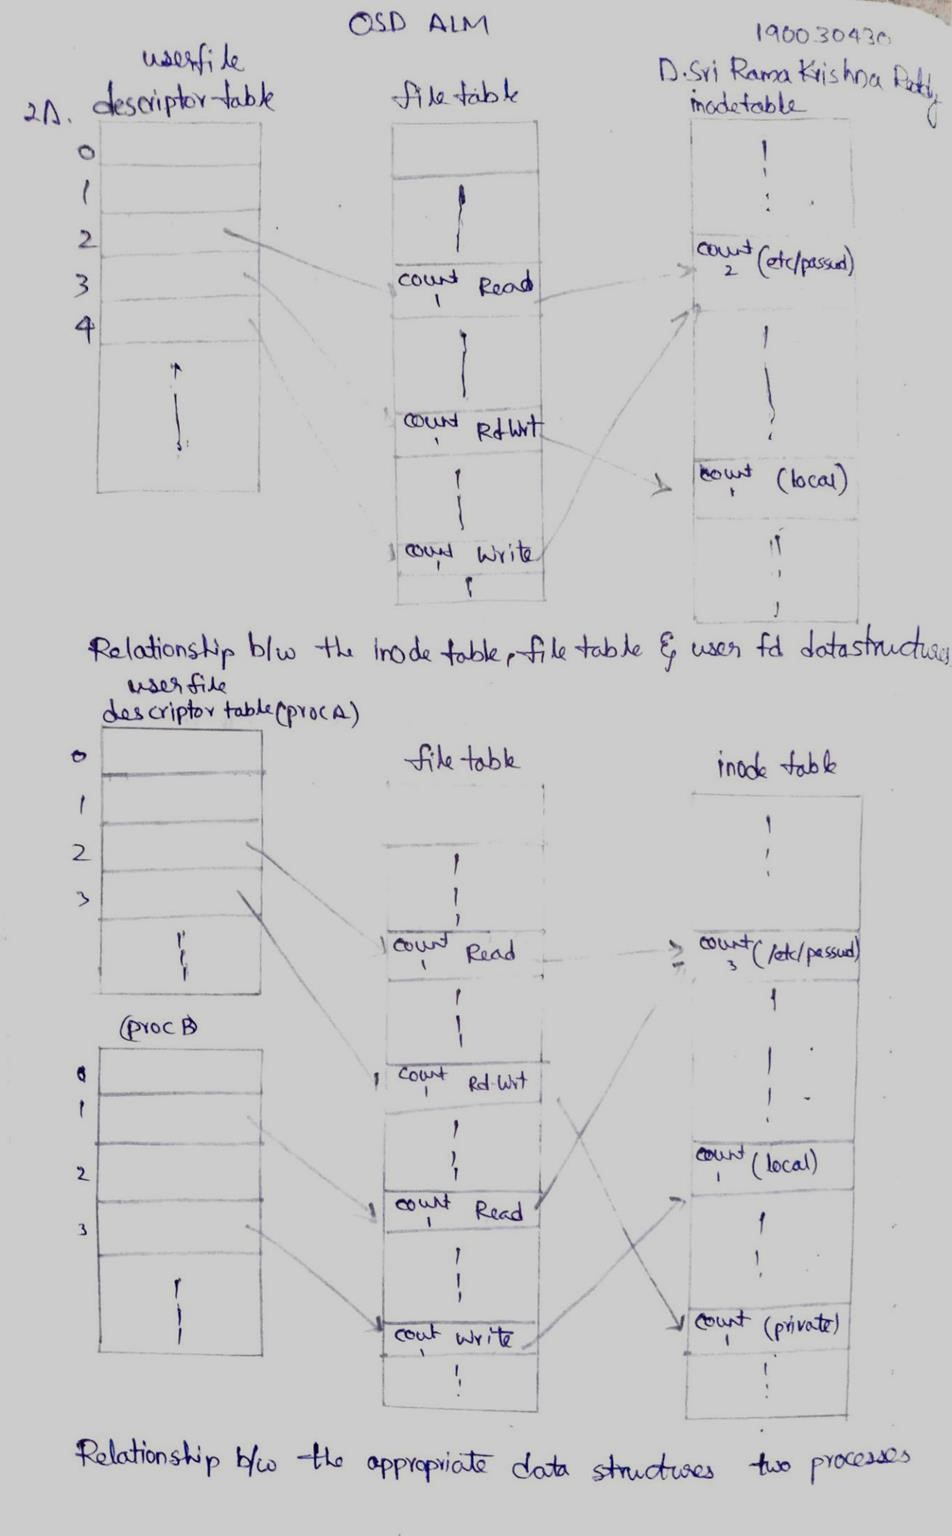 OSD ALM
190030430
D.Sri Rama Krishna Reddy
2A.
userfile
descriptor table
file table
inodetable
0
1
2
3
4
count Read
1
count Rd-Wrt
1
count Write
1
count (etc/passwd)
2
count (local)
1
Relationship b/w the inode table, file table & user fd datastructures
userfile
descriptor table (proc A)
file table
inode table
0
1
2
3
(proc B)
0
1
2
3
count Read
1
count Rd-Wrt
1
count Read
1
cout Write
1
count (/etc/passwd)
3
count (local)
1
count (private)
1
Relationship b/w the appropriate data structures two processes